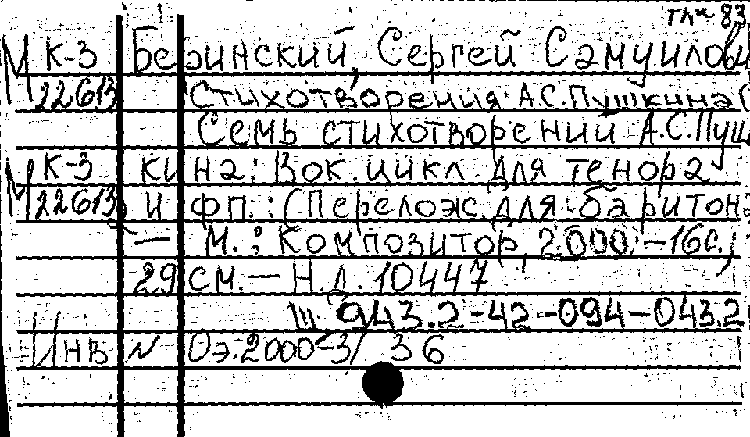 тлм 83
М К-3 Беринский, Сергей Самуилови
22613 Стихотворения А.С.Пушкина (
Семь стихотворений А.С.Пуш
М К-3 кина: Вок. цикл для тенора
22613 и фп.: (Перелож. для баритона
— М.: Композитор, 2000. -16с.;
29 см. — Н.д. 10447
Ш 943.2-42-094-043.2
Инв № Оэ.2000-3/ 36